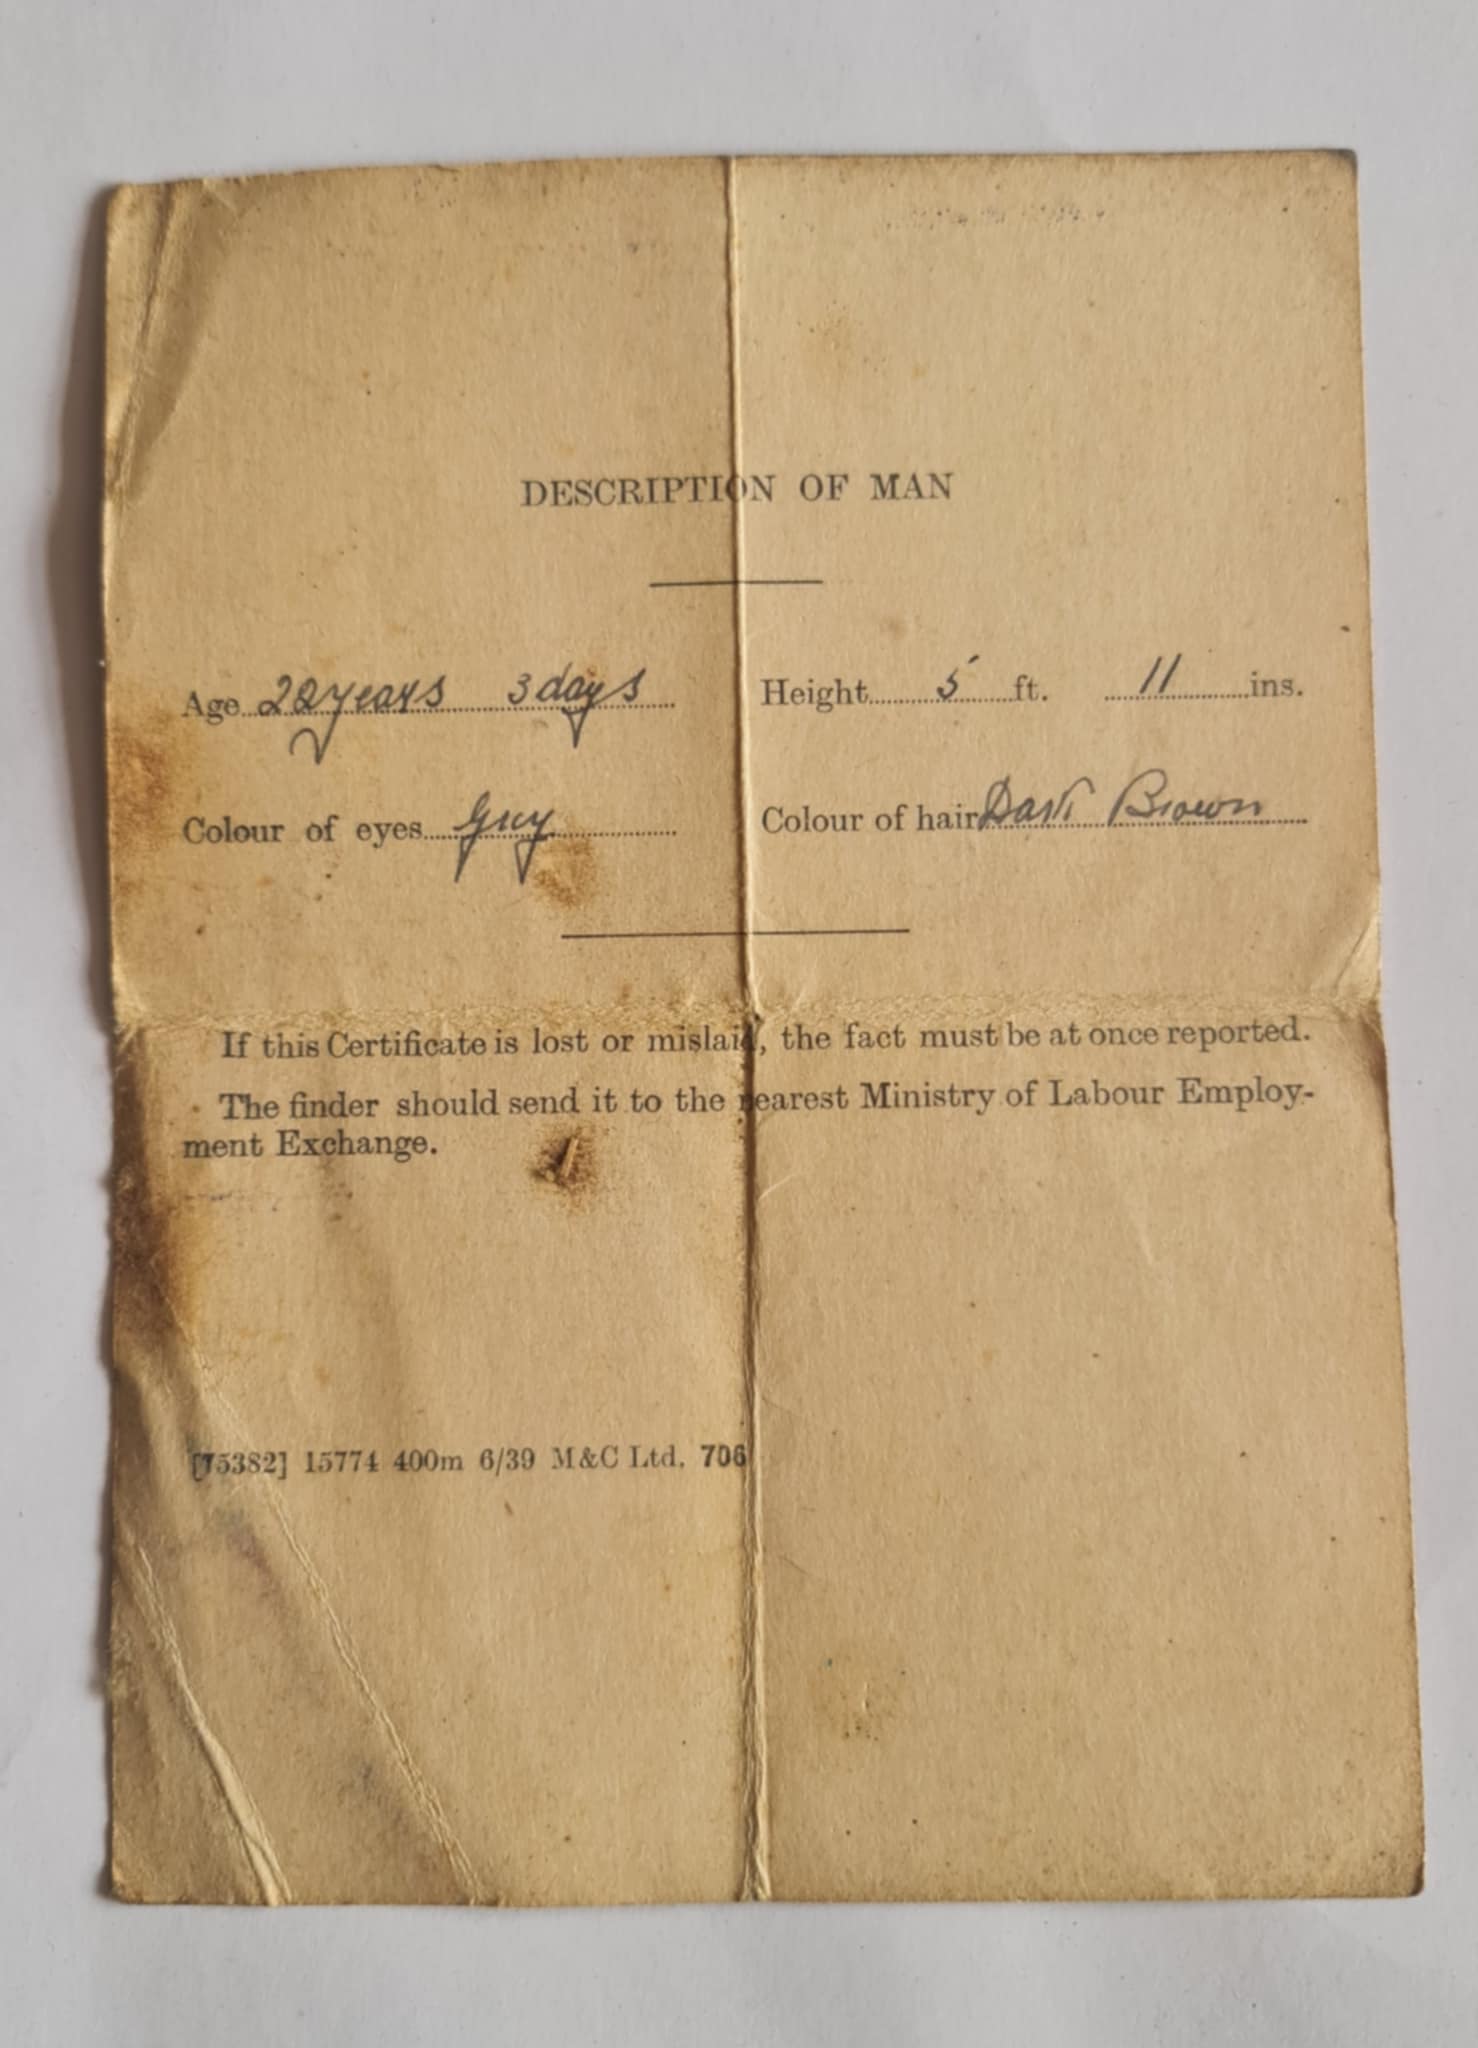 DESCRIPTION OF MAN
Age 22 years 3 days Height 5 ft. 11 ins.
Colour of eyes Grey Colour of hair Dark Brown
If this Certificate is lost or mislaid, the fact must be at once reported.
The finder should send it to the nearest Ministry of Labour Employ-
ment Exchange.
[75382] 15774 400m 6/39 M&C Ltd. 706